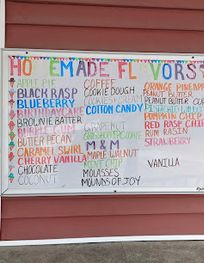 HOMEMADE FLAVORS
APPLE PIE
BLACK RASP
BLUEBERRY
BIRTHDAY CAKE
BROWNIE BATTER
BUBBLE GUM
BUTTER PECAN
CARAMEL SWIRL
CHERRY VANILLA
CHOCOLATE
COCONUT
COFFEE
COOKIE DOUGH
COOKIES + CREAM
COTTON CANDY
GRAPENUT
M & M
MAPLE WALNUT
MINT CHIP
MOLASSES
MOUNDS OF JOY
ORANGE PINEAPP
PEANUT BUTTER
PEANUT BUTTER CUP
PISTACHIO
PUMPKIN CHIP
RED RASP CHIP
RUM RAISIN
STRAWBERRY
VANILLA